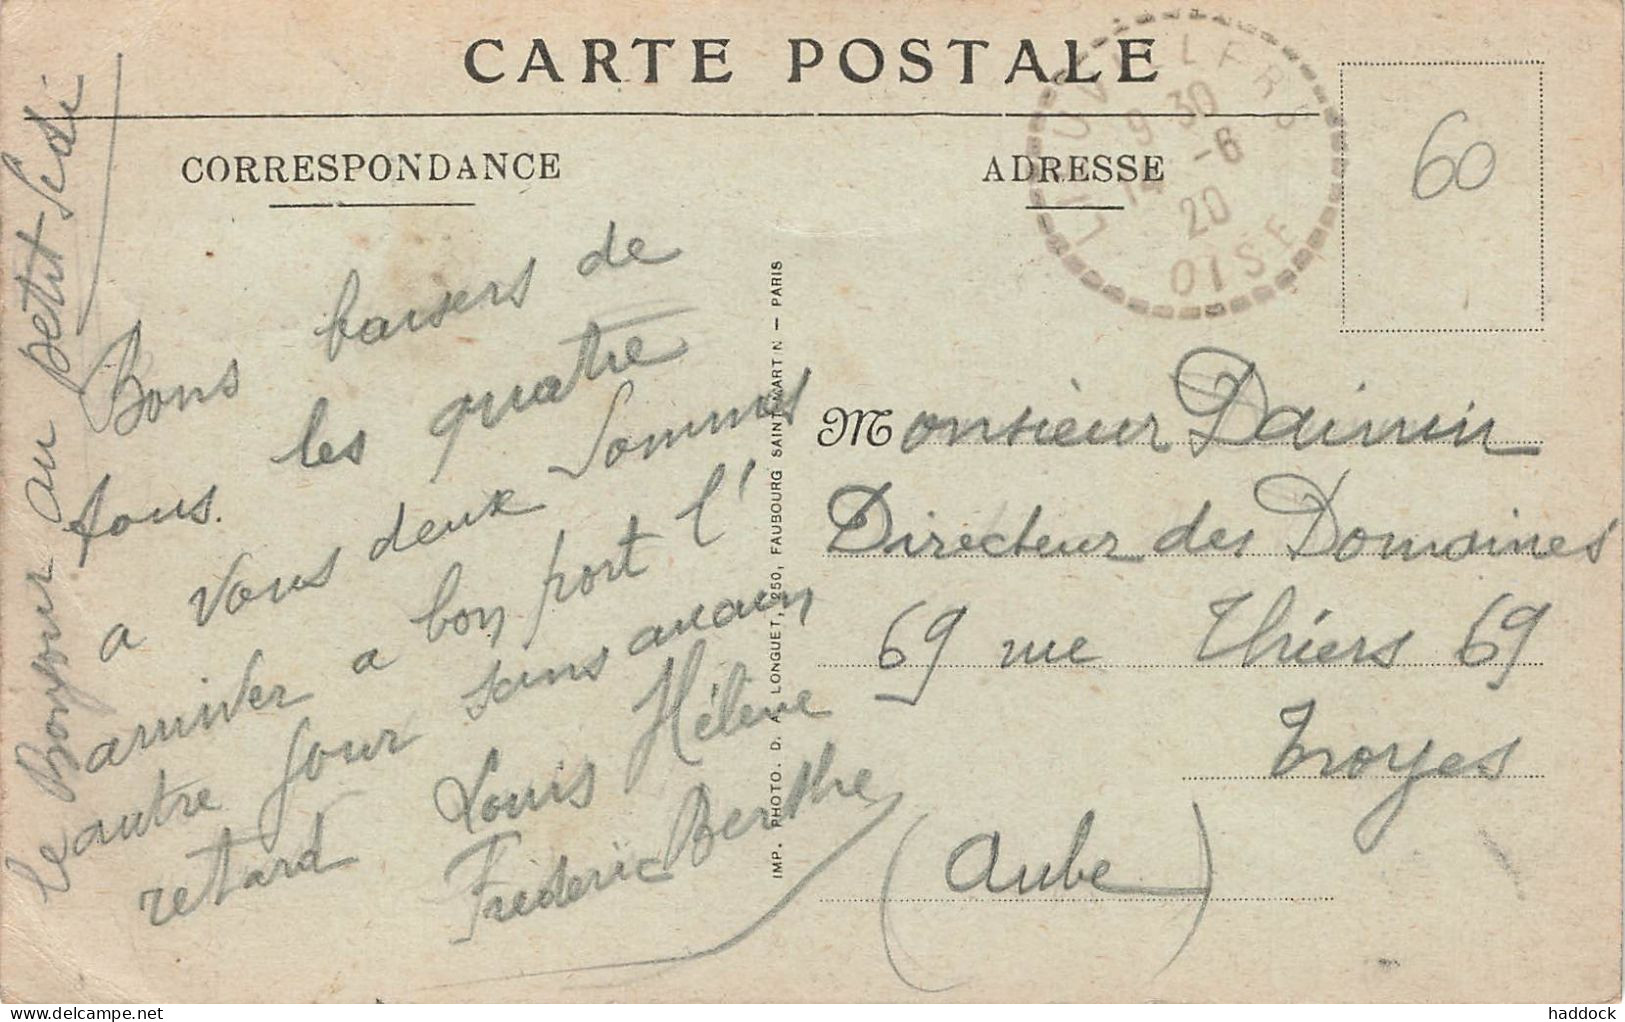 CARTE POSTALE
CORRESPONDANCE
ADRESSE
LIEUVILLERS
9 30
14 -6
20
OISE
60
Bons baisers de
tous les quatre
a vous deux Sommes
arriver a bon port l'
autre jour sans aucun
retard Louis Hélène
Fréderic Berthe
le Bonjour au petit
IMP. PHOTO. D. A. LONGUET, 250, FAUBOURG SAINT-MARTIN — PARIS
Monsieur
Directeur des Domaines
69 rue Thiers 69
Troyes
(Aube)
www.delcampe.net
haddock